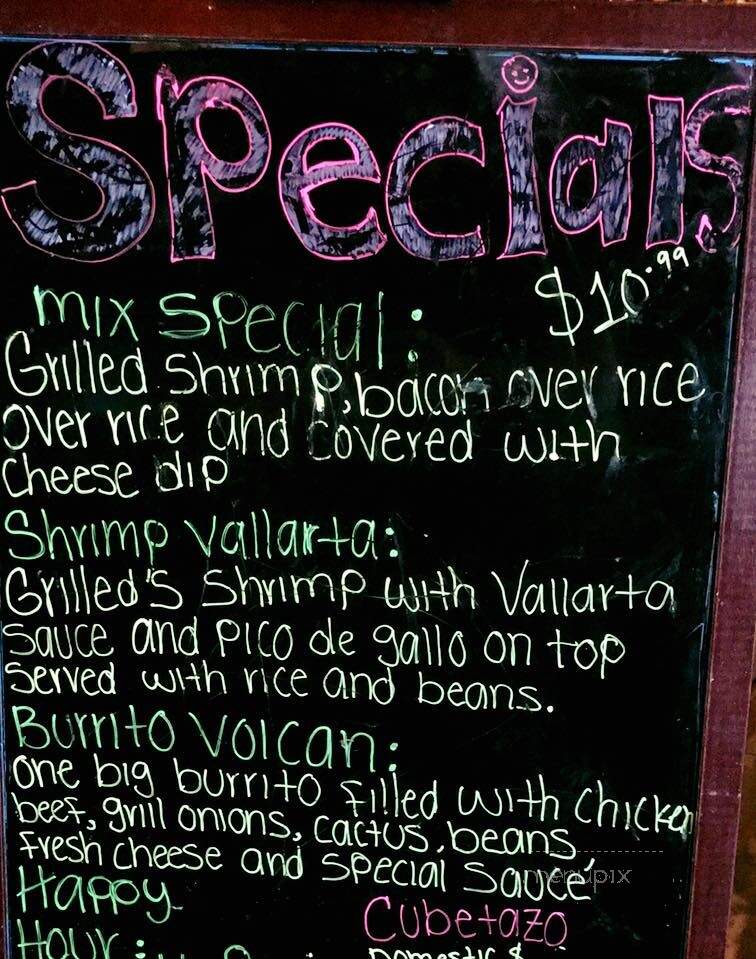 Specials
mix special: $10.99
Grilled shrimp, bacon over rice
over rice and covered with
cheese dip
Shrimp Vallarta:
Grilled's shrimp with Vallarta
sauce and pico de gallo on top
served with rice and beans.
Burrito Volcan:
one big burrito filled with chicken
beef, grill onions, cactus, beans
fresh cheese and special sauce
menupix
Happy
Cubetazo
Hour:
Domestic $